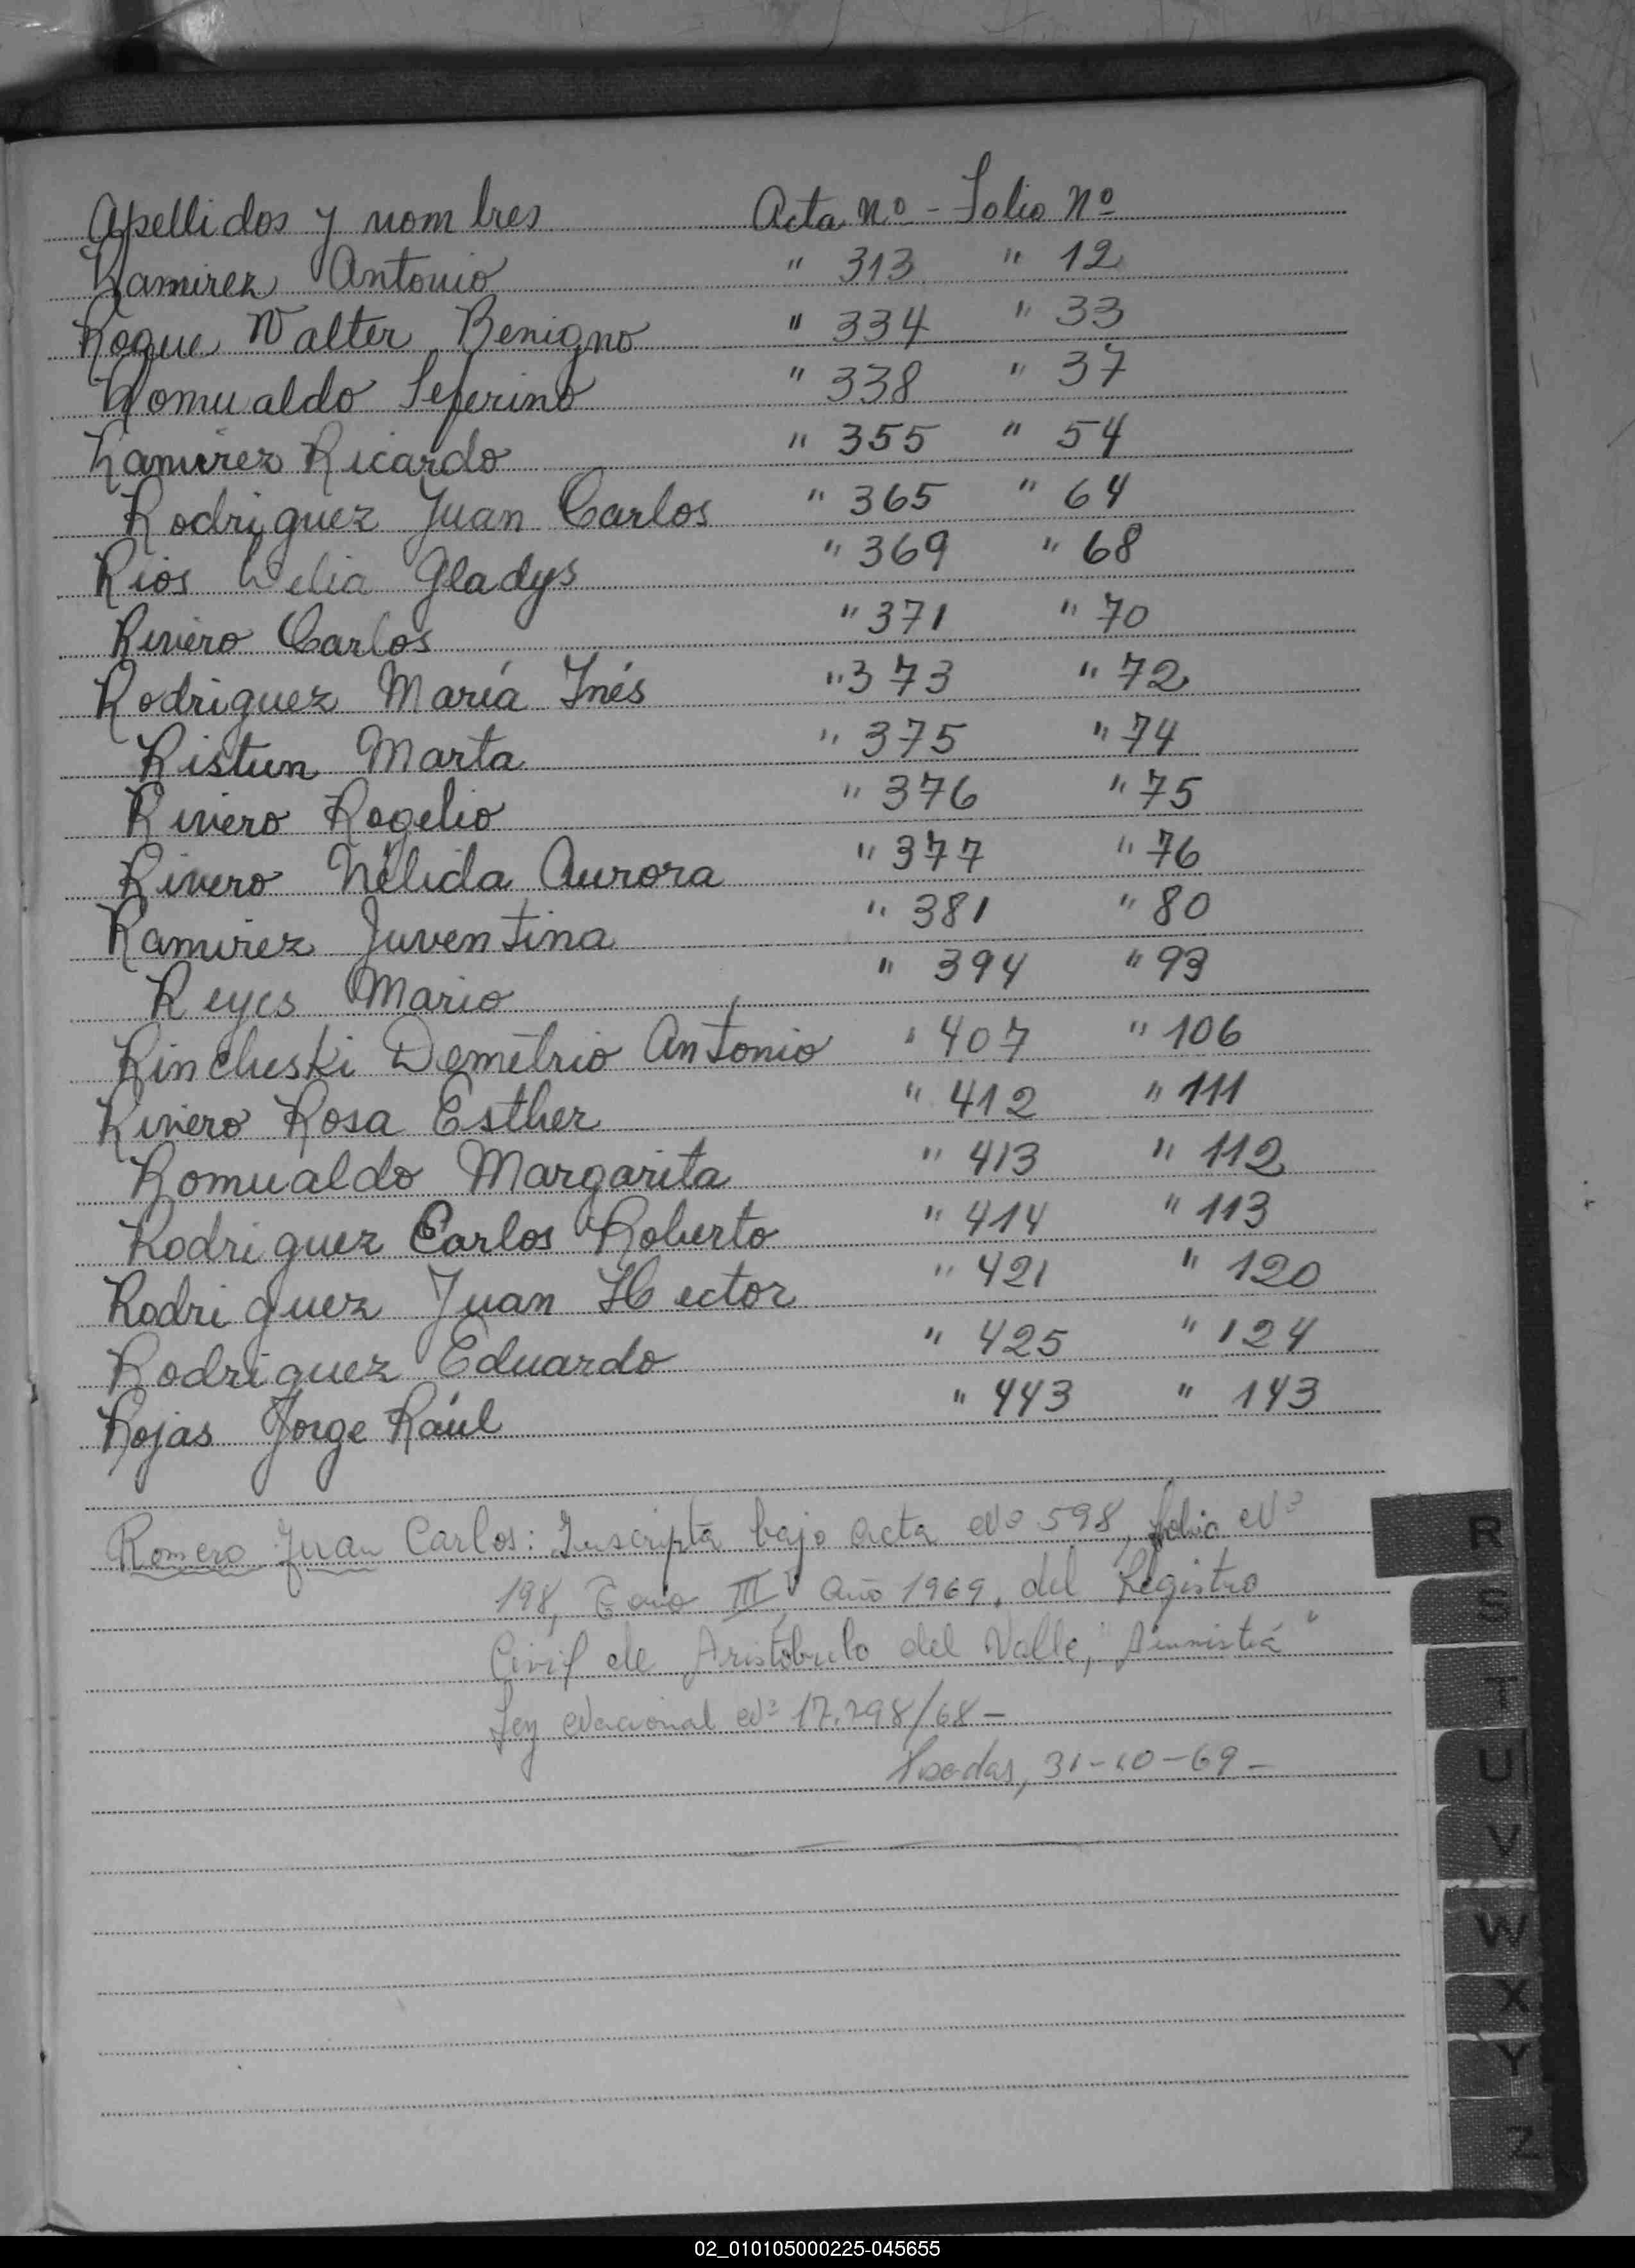 Apellidos y nombres Acta Nº - Folio Nº
Ramirez Antonio " 313 " 12
Roque Walter Benigno " 334 " 33
Romualdo Seferino " 338 " 37
Ramirez Ricardo " 355 " 54
Rodriguez Juan Carlos " 365 " 64
Rios Gladys " 369 " 68
Rivero Carlos " 371 " 70
Rodriguez María Inés " 373 " 72
Ristun Marta " 375 " 74
Rivero Rogelio " 376 " 75
Rivero Nélida Aurora " 377 " 76
Ramirez Juventina " 381 " 80
Reyes Mario " 394 " 93
Rincheski Demetrio Antonio " 407 " 106
Rivero Rosa Esther " 412 " 111
Romualdo Margarita " 413 " 112
Rodriguez Carlos Roberto " 414 " 113
Rodriguez Juan Hector " 421 " 120
Rodriguez Eduardo " 425 " 124
Rojas Jorge Raúl " 443 " 143
Romero Juan Carlos: Inscripta bajo acta Nº 598, folio Nº
198, Tomo III, año 1969, del Registro
Civil de Aristóbulo del Valle, "Amnistía"
Ley Nacional Nº 17.298/68-
Posadas, 31-10-69-
R
S
T
U
V
W
X
Y
Z
02_010105000225-045655